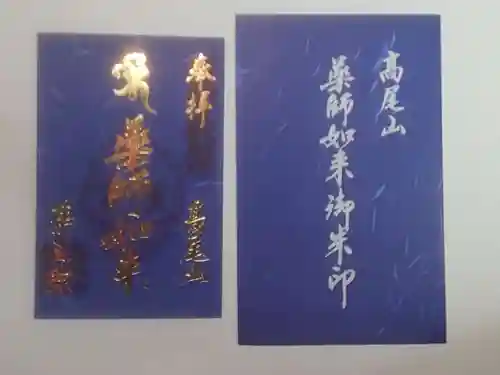 奉拝
高尾山
薬師如来
高尾山
薬師如来御朱印